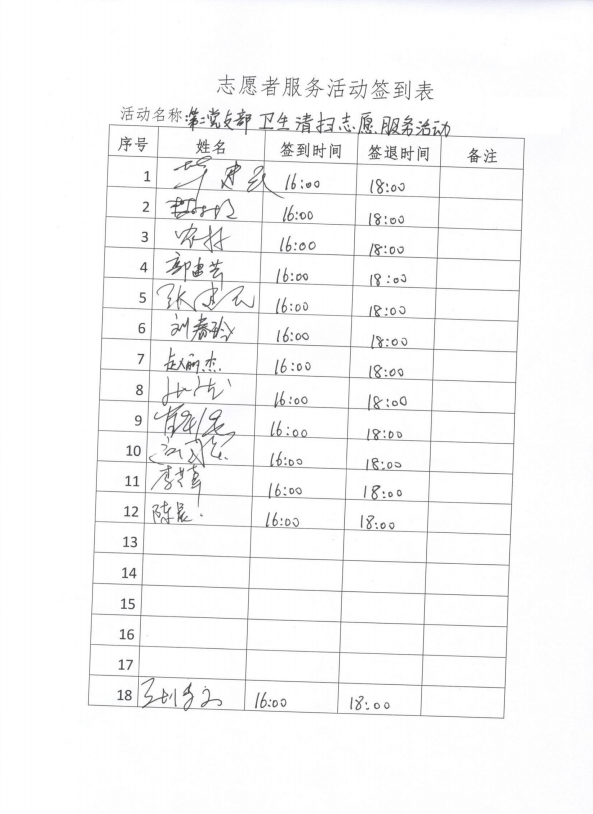 志愿者服务活动签到表
活动名称:第二党支部 卫生清扫志愿服务活动
序号 姓名 签到时间 签退时间 备注
1 建民 16:00 18:00
2 16:00 18:00
3 农林 16:00 18:00
4 郭建芸 16:00 18:00
5 张建民 16:00 18:00
6 刘春玲 16:00 18:00
7 赵丽杰 16:00 18:00
8 16:00 18:00
9 16:00 18:00
10 16:00 18:00
11 李 16:00 18:00
12 陈晨. 16:00 18:00
13
14
15
16
17
18 16:00 18:00